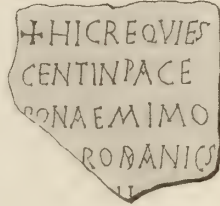 ✠HICREQVIES
CENTINPACE
BONAEMIMO
RODANICS